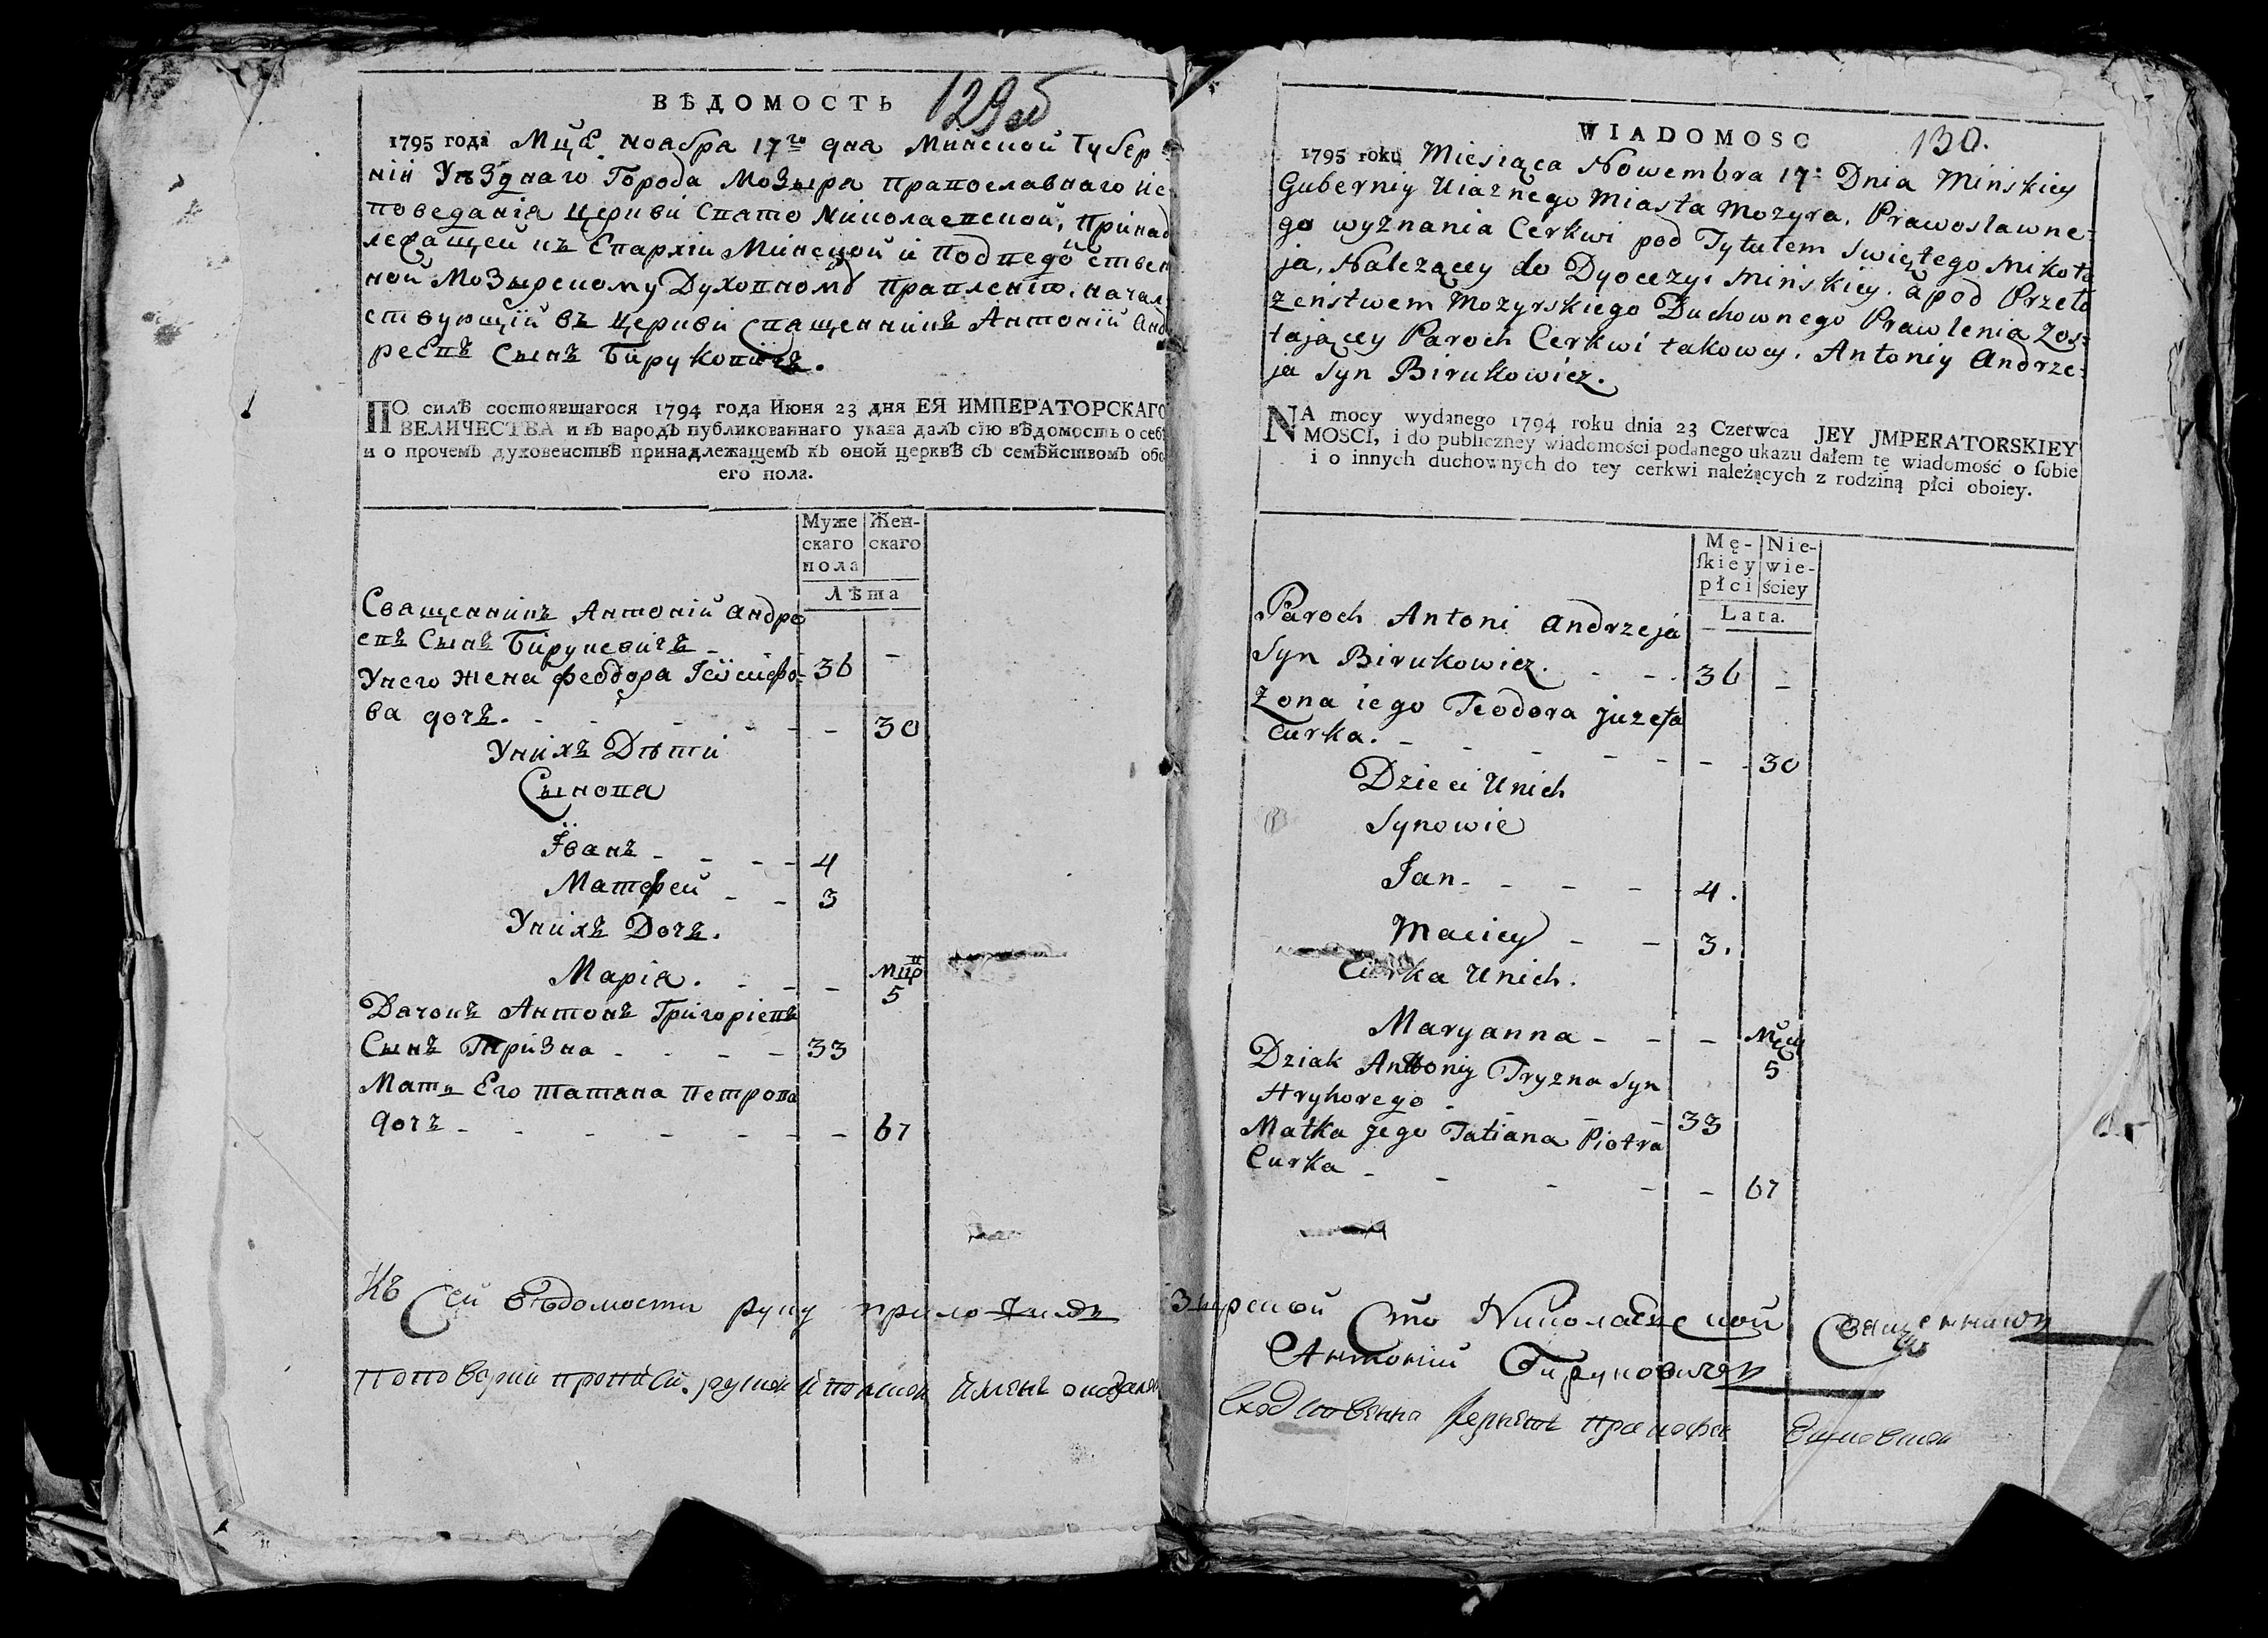 ВѢДОМОСТЬ
129об
1795 года Мца Ноабра 17го дна Минской Губер
нiи Уѣзднаго Города Мозыра Православнаго ис
поведанiя Церкви Свято Николаевской, Принад
лежащей къ Епархiи Минской и Подведомствен
ной Мозырскому Духовному Правленiю, начал
ствующiй въ Церкви Священникъ Антонiй Анд
реевъ Сынъ Бируковичъ.
ПО силѣ состоявшагося 1794 года Июня 23 дня ЕЯ ИМПЕРАТОРСКАГО
ВЕЛИЧЕСТВА и въ народъ публикованнаго указа далъ сiю вѣдомость о себѣ
и о прочемъ духовенствѣ принадлежащемъ къ оной церквѣ съ семѣйствомъ обо
его пола.
Муже Жен-
скаго скаго
пола
Лѣта
Священникъ Антонiй Андре
евъ Сынъ Бирукевичъ - 36 -
Унего жена Феодора Iосифо-
ва дочъ. - - 30
Унихъ Дѣти
Сынова
Iванъ - - 4
Матфей - - 3
Унихъ Дочъ.
Марiя. - - мцр
5
Дячокъ Антонъ Григорiевъ
Сынъ Тризна - - 33
Мать Его Татяна Петрова
дочъ - - 67
Къ Сей Ведомости руку приложилъ
WIADOMOSC
130.
1795 roku Miesiąca Nowembra 17: Dnia Minskiey
Guberniy Uiaznego Miasta Mozyra, Prawosławne=
go wyznania Cerkwi pod Tytułem Swiętego Mikoła
ja, Nalezącey do Dyocezyi Minskiey, a pod Przeło
zeństwem Mozyrskiego Duchownego Prawlenia Zos=
tającey Paroch Cerkwi takowey, Antoniy Andrze=
ja Syn Birukowicz.
NA mocy wydanego 1794 roku dnia 23 Czerwca JEY JMPERATORSKIEY
MOSCI, i do publiczney wiadomości podanego ukazu dałem tę wiadomość o sobie
i o innych duchownych do tey cerkwi należących z rodziną płci oboiey.
Mę- Nie-
ſkiey wie-
płci ściey
Lata.
Paroch Antoni Andrzeja
Syn Birukowicz. - - 36 -
Zona iego Teodora Juzefa
Curka. - - 30
Dzieci Unich
Synowie
Jan - - 4.
Maciey - - 3.
Curka Unich.
Maryanna - - - Mcy
5
Dziak Antoniy Tryzna Syn
Hryhorego - - 33
Matka Jego Tatiana Piotra
Curka - - 67
Зырской Сто Николаевской Священникъ
Антонiй Бируковичъ